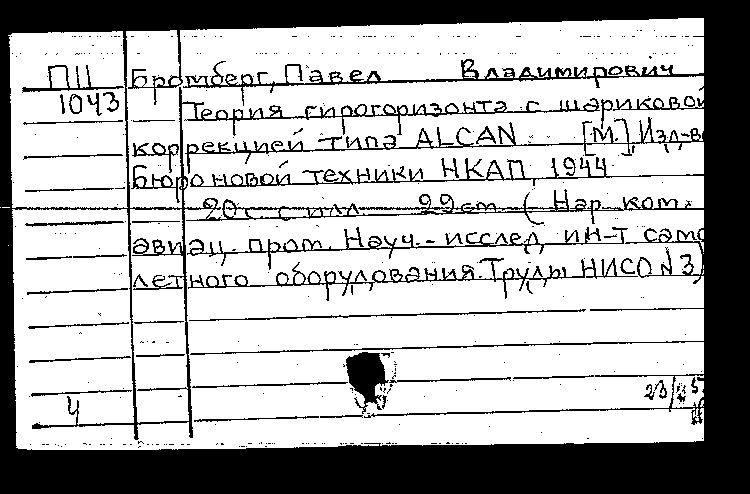 П11 Бромберг, Павел Владимирович
1043 Теория гирогоризонта с шариковой
коррекцией типа ALCAN [М.], Изд-во
Бюро новой техники НКАП, 1944
20 с. с илл. 29 см (Нар. ком.
авиац. пром. Науч.-исслед. ин-т само
летного оборудования. Труды НИСО №3)
4